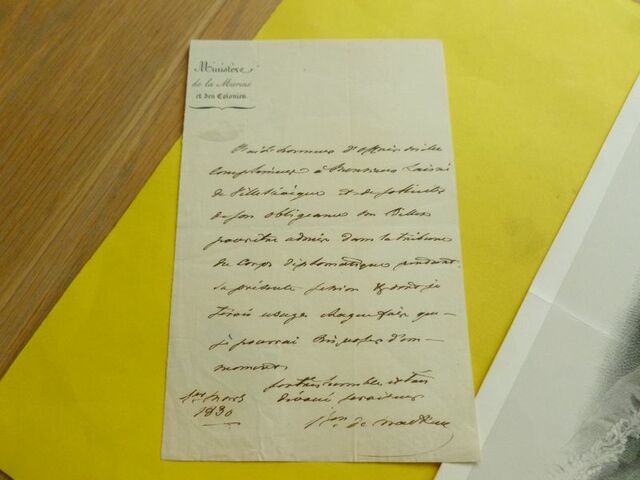 Ministère
de la Marine
et des Colonies
d'offrir
à Monsieur Lainé
de Villevêque et de solliciter
de son obligeance un Billet
pour être admis dans la tribune
du Corps diplomatique pendant
la présente session & dont je
ferai usage chaque fois que
je pourrai disposer d'un
moment
son très humble et très
dévoué serviteur
1er mars
1830
de